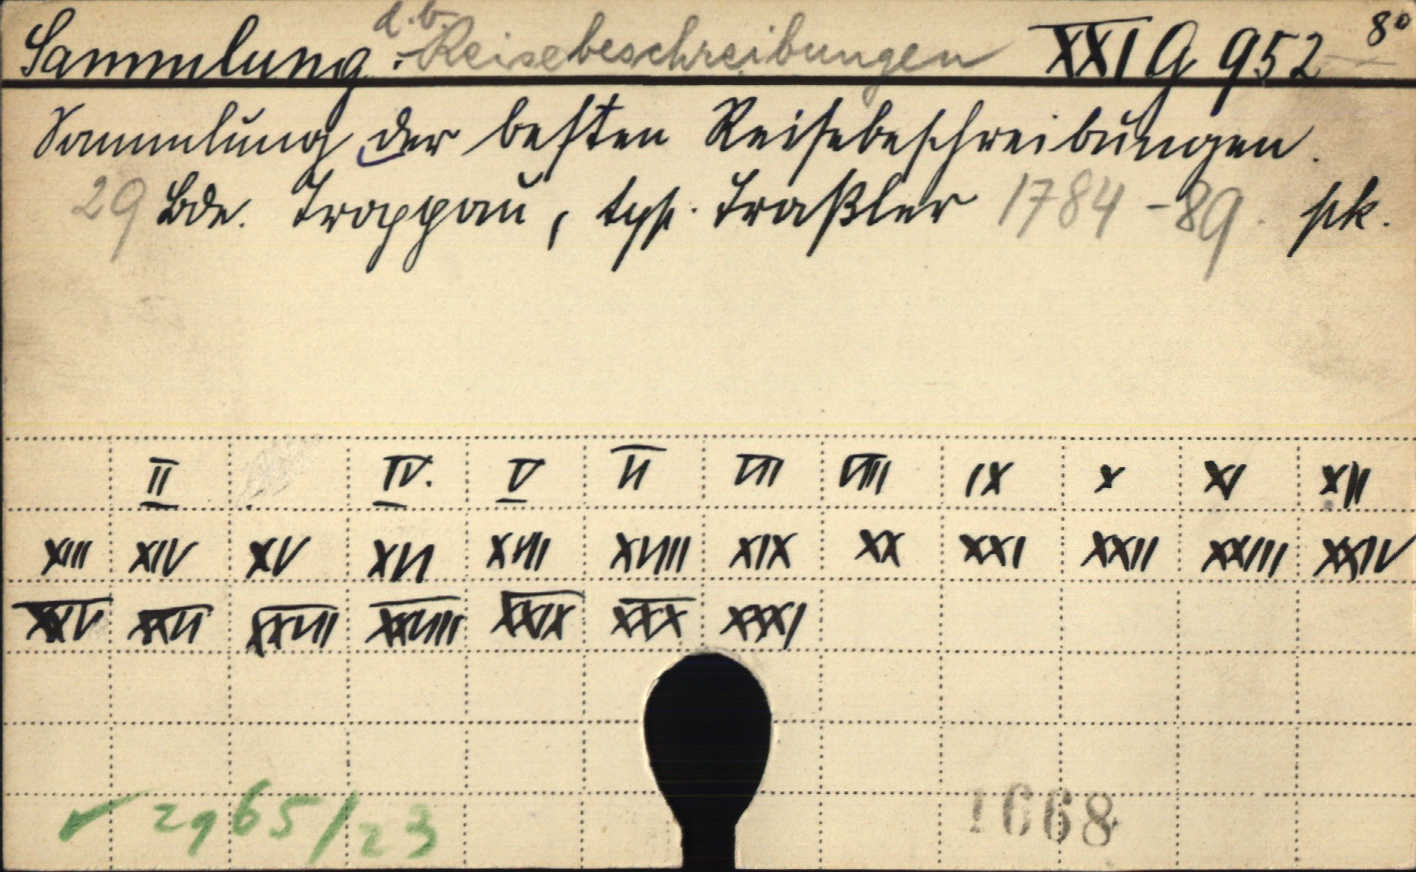 Sammlung d. b. Reisebeschreibungen XXI G 952 8°
Sammlung der besten Reisebeschreibungen.
29 Bde. Troppau, typ. Traßler 1784-89. spk.
II IV. V VI VII VIII IX X XI XII
XIII XIV XV XVI XVII XVIII XIX XX XXI XXII XXIII XXIV
XXV XXVI XXVII XXVIII XXIX XXX XXXI
✓ 2965/23 1668